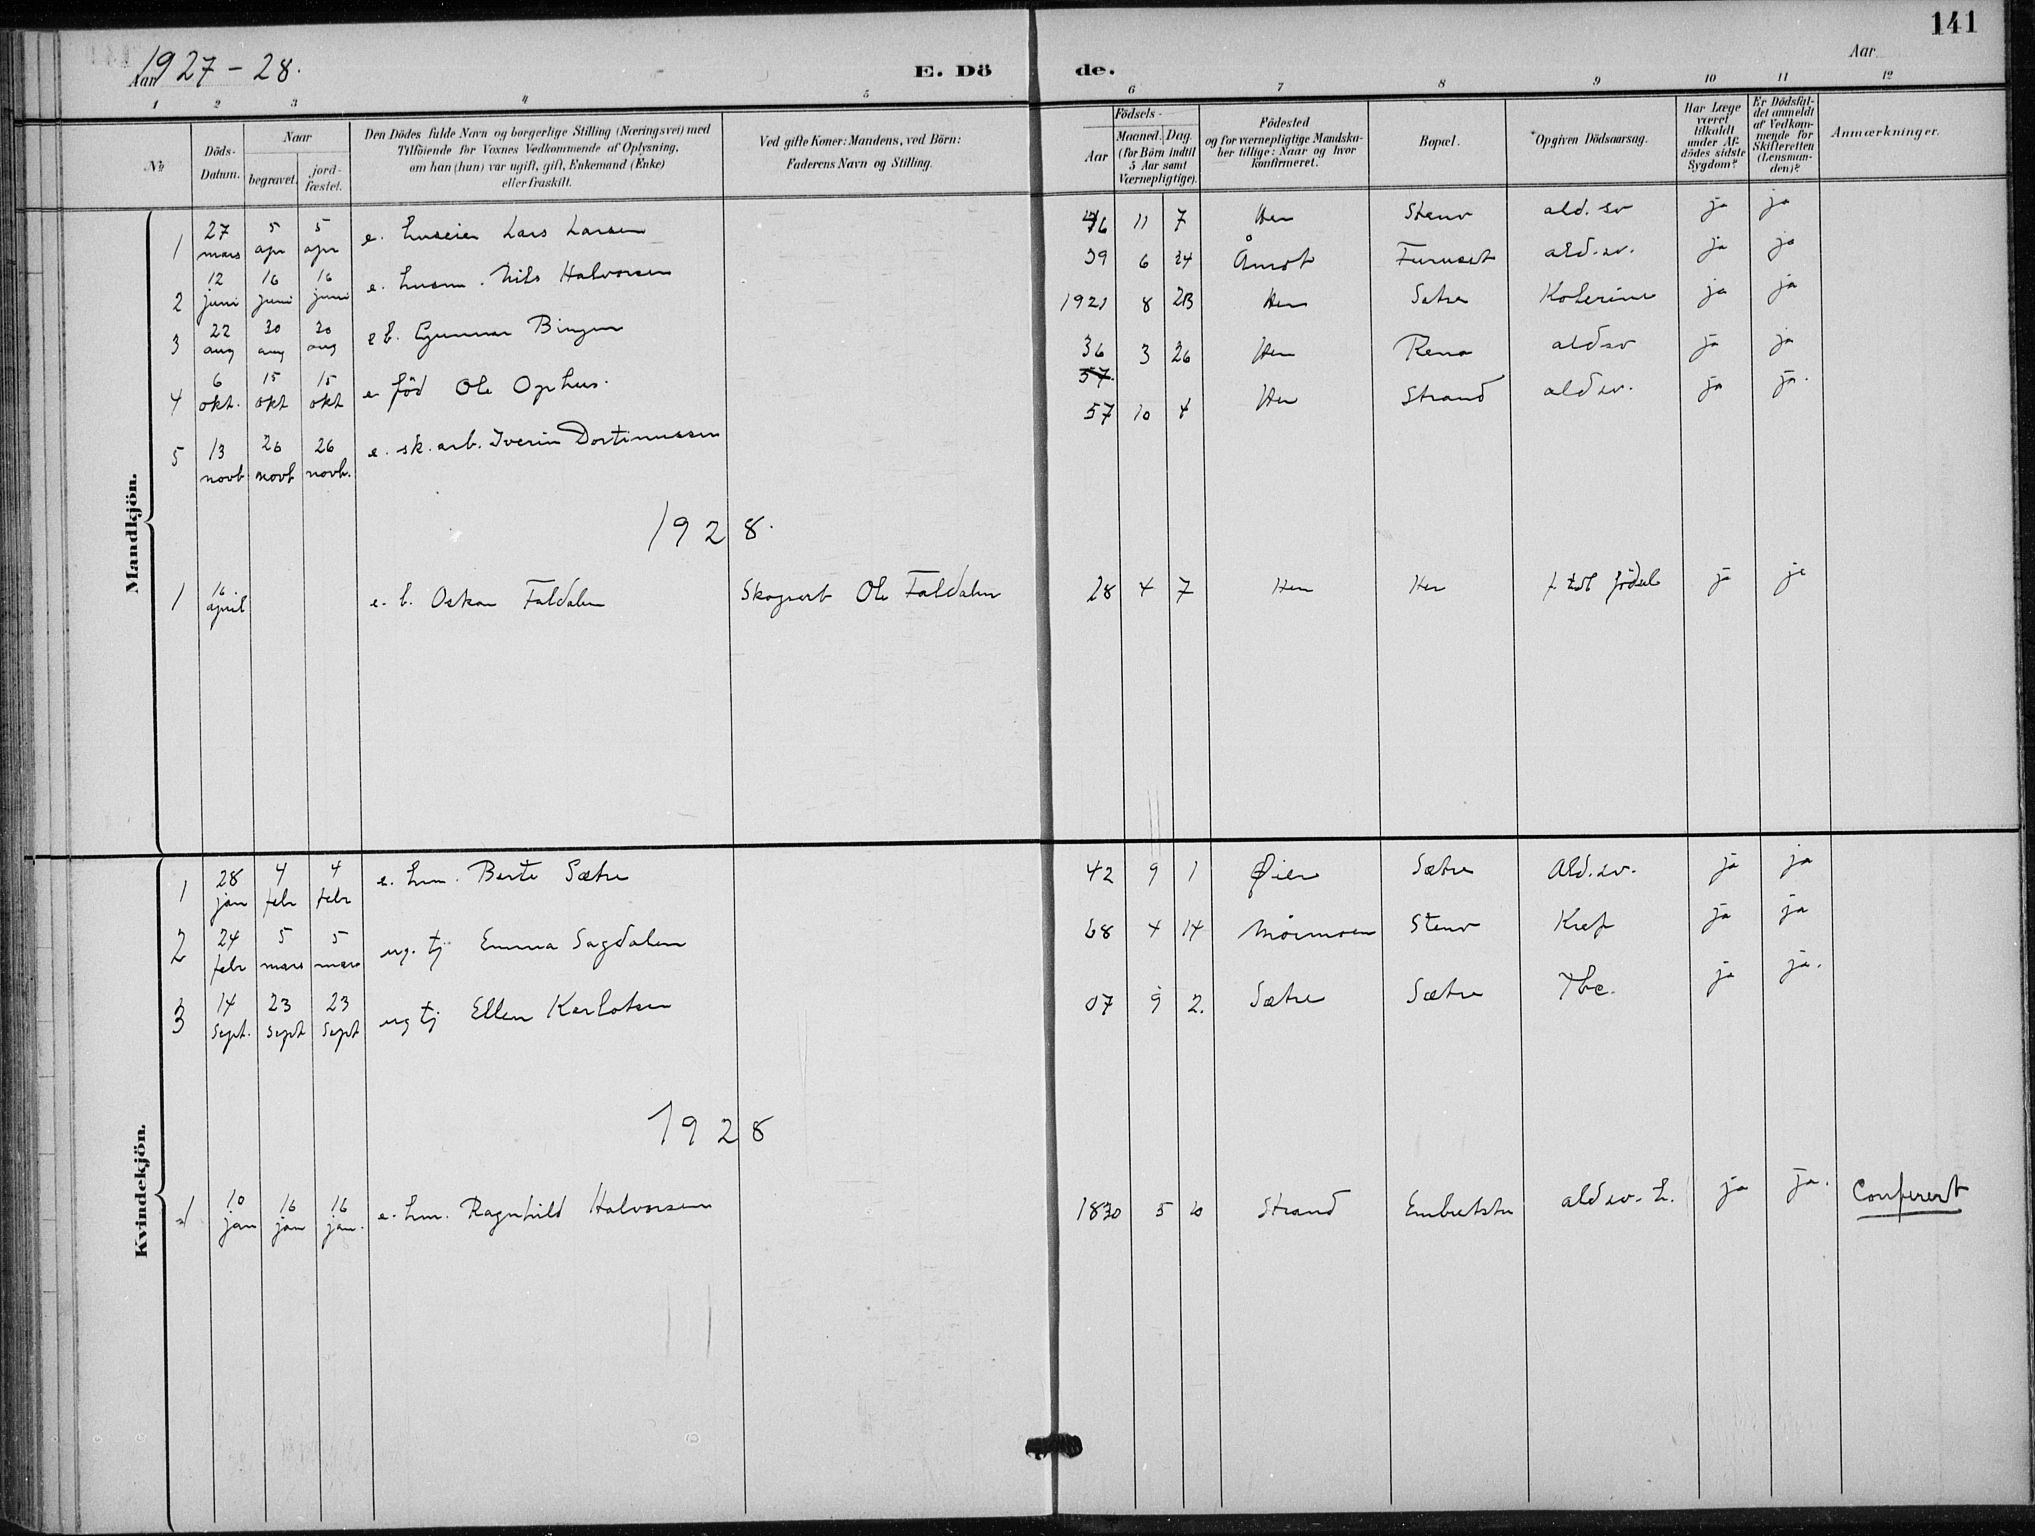 141
Aar 1927-28.
E. Döde.
Aar
1 2 3 4 5 6 7 8 9 10 11 12
No
Döds-Datum.
Naar
begravet.
jordfæstet.
Den Dödes fulde Navn og borgerlige Stilling (Næringsvei) med
Tilföiende for Voxnes Vedkommende af Oplysning,
om han (hun) var ugift, gift, Enkemand (Enke)
eller fraskilt.
Ved gifte Koner: Mandens, ved Börn:
Faderens Navn og Stilling.
Födsels-
Aar
Maaned. Dag.
(for Börn indtil
5 Aar samt
Værnepligtige).
Födested
og for værnepligtige Mandska-
ber tillige: Naar og hvor
konfirmeret.
Bopæl.
Opgiven Dödsaarsag.
Har Læge
været
tilkaldt
under Af-
dödes sidste
Sygdom?
Er Dödsfal-
det anmeldt
af Vedkom-
mende for
Skifteretten
(Lensman-
den)?
Anmærkninger.
Mandkjön.
1 27 mars 5 apr 5 apr e. huseier Lars Larsen 46 11 7 Her Stenv ald. sv ja ja
2 12 juni 16 juni 16 juni e. husm. Nils Halvorsen 39 6 24 Åmot Furuset ald. sv. ja ja
3 22 aug 30 aug 30 aug e b. Gunnar Bingen 1921 8 23 Her Sætre Kolerine ja ja
4 6 okt. 15 okt 15 okt e. föd Ole Ophus. 36 3 26 Her Rena ald sv ja ja
57.
5 13 novb 26 novb 26 novb. e. sk. arb. Iverin Dortinussen 57 10 4 Her Strand ald sv. ja ja.
1928.
1 16 april e. b. Oskar Faldalen Skogarb Ole Faldalen 28 4 7 Her Her f. tdl födsel ja ja
Kvindekjön.
1 28 jan 4 febr 4 febr e. hm. Berte Sætre 42 9 1 Øier Sætre Ald. sv. ja ja
2 24 febr 5 mars 5 mars ug. tj Emma Sagdalen 68 4 14 Mörmoen Stenv Kref ja ja
3 14 Sept. 23 Sept 23 Sept ug tj Ellen Karlotsen 07 9 2. Sætre Sætre Tbc. ja ja.
1928
1 10 jan 16 jan 16 jan. e. hm. Ragnhild Halvorsen 1830 5 10 Strand Embretstu ald sv. h. ja ja. Conferert